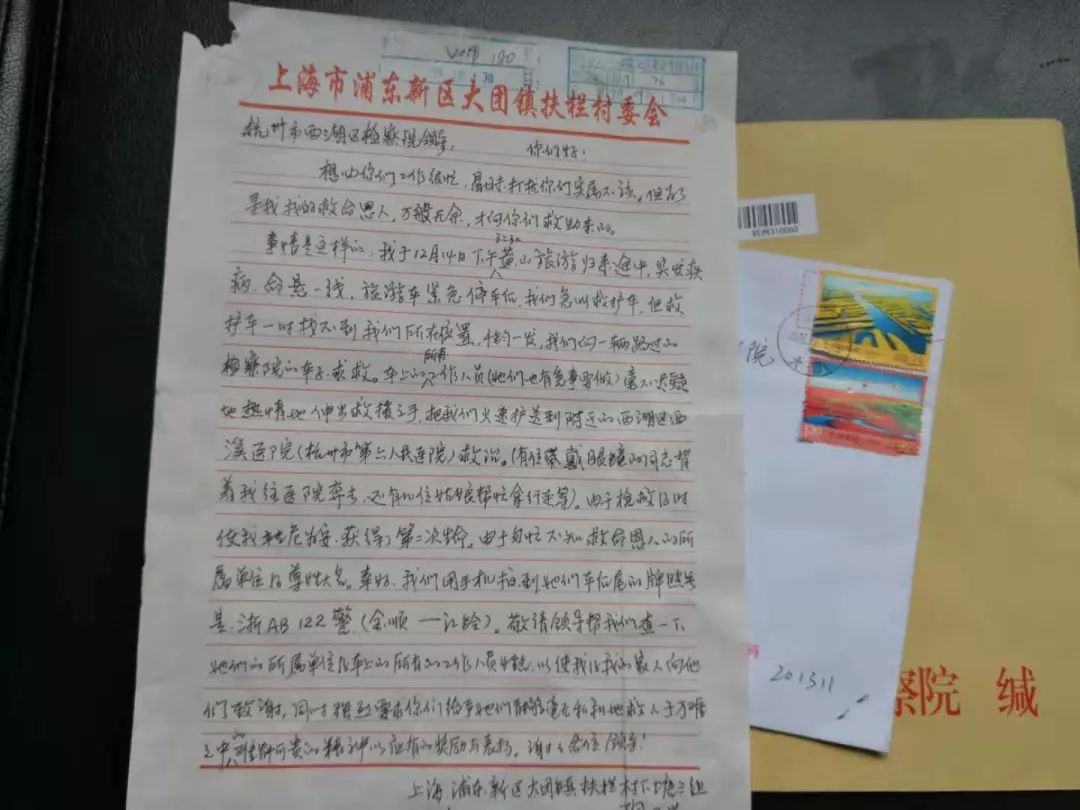 2019 180号
30
上海市浦东新区大团镇扶栏村委会
杭州市西湖区检察院领导：你们好！
想必你们工作很忙，届时打扰你们实属不该。但为了
寻找我的救命恩人，万般无奈，才向你们救助来的。
事情是这样的，我于12月14日下午黄山旅游归来途中，突发疾
病，命悬一线，旅游车紧急停车后，我们急叫救护车，但救
护车一时找不到我们所在位置，千钧一发，我们向一辆路过的
检察院的车子求救。车上的所有工作人员（她们也有急事要做）毫不迟疑
地热情地伸出救援之手，把我们火速护送到附近的西湖区西
溪医院（杭州市第六人民医院）救治。（有位戴眼镜的同志背
着我往医院奔去，还有几位姑娘帮忙拿行李等）。由于抢救及时
使我转危为安，获得了第二次生命。由于匆忙不知救命恩人的所
属单位及尊姓大名。幸好，我们用手机拍到她们车后尾的牌照号
是：浙AB122警（金顺一让给）。敬请领导帮我们查一下
她们的所属单位及车上的所有的工作人员姓名，以使我及我的家人向他
们致谢，同时强烈要求你们给予她们毫无私利地救人于万难
之中的难能可贵的精神以应有的奖励与表扬。谢谢各位领导！
上海浦东新区大团镇扶栏村下塘三组
杭州310000
院
201311
察院 缄